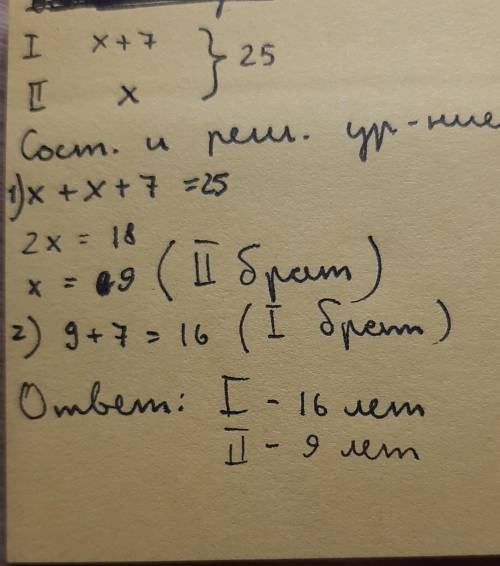 I x+7 } 25
II x
Сост. и реш. ур-ние
1) x + x + 7 = 25
2x = 18
x = 9 (II брат)
2) 9 + 7 = 16 (I брат)
Ответ: I - 16 лет
II - 9 лет